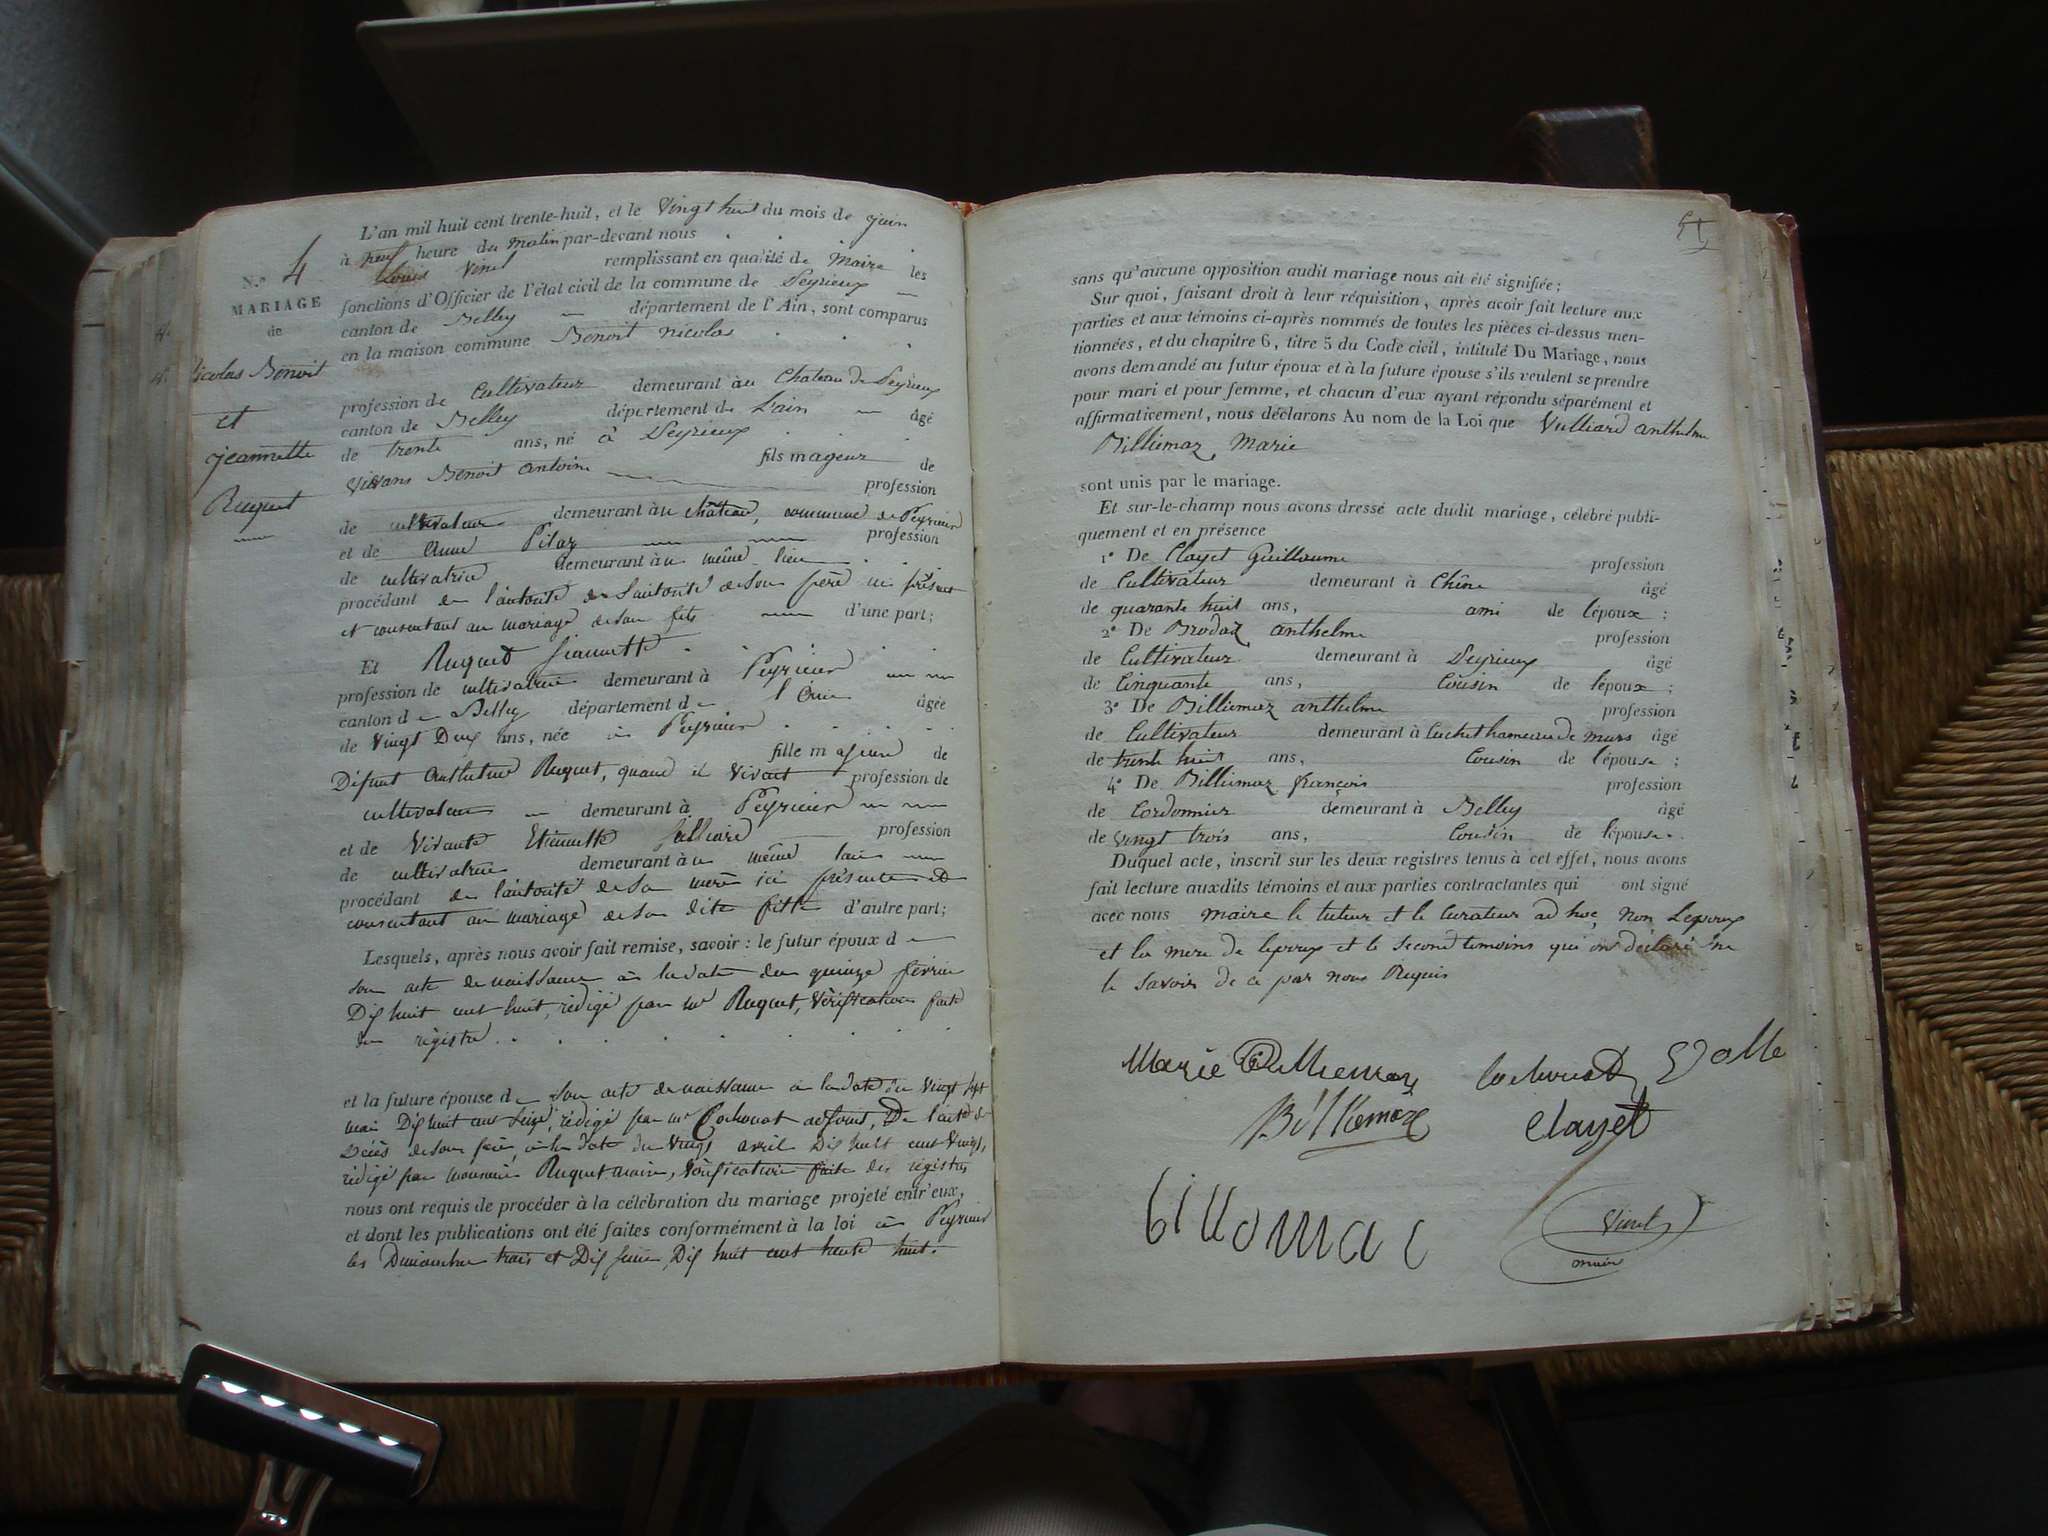 N.º 4
MARIAGE
de
Nicolas Benoit
et
Jeannette
Ruguet
L'an mil huit cent trente-huit, et le Vingt huit du mois de juin
à neuf heure du matin par-devant nous
Louis Vinet remplissant en qualité de Maire les
fonctions d'Officier de l'état civil de la commune de Peyrieux
canton de Belley département de l'Ain, sont comparus
en la maison commune Benoit Nicolas
profession de Cultivateur demeurant au Chateau de Peyrieux
canton de Belley département de L'ain âgé
de trente ans, né à Peyrieux
fils mageur de
vivans Benoit antoine profession
de cultivateur demeurant au château, commune de Peyrieu
et de Anne Pilaz profession
de cultivatrice demeurant au même lieu
procédant de l'autorité de l'autorité de son père ici présent
et consentant au mariage de son fils d'une part;
Et Ruguet Jeannette
profession de cultivatrice demeurant à Peyrieu
canton de Belley département de l'Ain âgée
de vingt Deux ans, née à Peyrieu
fille majeure de
Défunt Anthelme Ruguet, quand il vivait profession de
cultivateur demeurant à Peyrieu
et de Vivante Etiennette Julliard profession
de cultivatrice demeurant au même lieu
procédant de l'autorité de Sa mère ici présente et
consentant au mariage de Sa dite fille d'autre part;
Lesquels, après nous avoir fait remise, savoir : le futur époux de
son acte de naissance à la date du quinze février
Dix huit cent huit, rédigé par mr Ruguet, Vérification faite
du régistre
et la future épouse de Son acte de naissance à la date du vingt sept
mai Dix huit cent seize, rédigé par mr Cochonat adjoint, De l'acte de
Décès de son père, à la date du vingt avril Dix huit cent Vingt,
rédigé par monsieur Ruguet maire, Vérification faite des régistres
nous ont requis de procéder à la célébration du mariage projeté entr'eux,
et dont les publications ont été faites conformément à la loi à Peyrieu
les Dimanches trois et Dix juin Dix huit cent trente huit.
51
sans qu'aucune opposition audit mariage nous ait été signifiée;
Sur quoi, faisant droit à leur réquisition, après avoir fait lecture aux
parties et aux témoins ci-après nommés de toutes les pièces ci-dessus men-
tionnées, et du chapitre 6, titre 5 du Code civil, intitulé Du Mariage, nous
avons demandé au futur époux et à la future épouse s'ils veulent se prendre
pour mari et pour femme, et chacun d'eux ayant répondu séparément et
affirmativement, nous déclarons Au nom de la Loi que Vulliard anthelme
Billiemaz Marie
sont unis par le mariage.
Et sur-le-champ nous avons dressé acte dudit mariage, célébré publi-
quement et en présence
1º De Clayet Guillaume profession
de Cultivateur demeurant à Chêne âgé
de quarante huit ans, ami de l'époux ;
2º De Brodaz anthelme profession
de Cultivateur demeurant à Peyrieux âgé
de Cinquante ans, Cousin de l'époux ;
3º De Billiemaz anthelme profession
de Cultivateur demeurant à Cuchet hameau de murs âgé
de trente huit ans, Cousin de l'épouse ;
4º De Billiemaz françois profession
de Cordonnier demeurant à Belley âgé
de vingt trois ans, Cousin de l'épouse.
Duquel acte, inscrit sur les deux registres tenus à cet effet, nous avons
fait lecture auxdits témoins et aux parties contractantes qui ont signé
avec nous maire le tuteur et le Curateur ad hoc, Non Lepoux
et la mere de lepoux et le second temoins qui ont déclaré ne
le savoir de ce par nous Requis
Marie Billiemaz Cochonat
Billiemaz Clayet
billomac
Vinet
maire